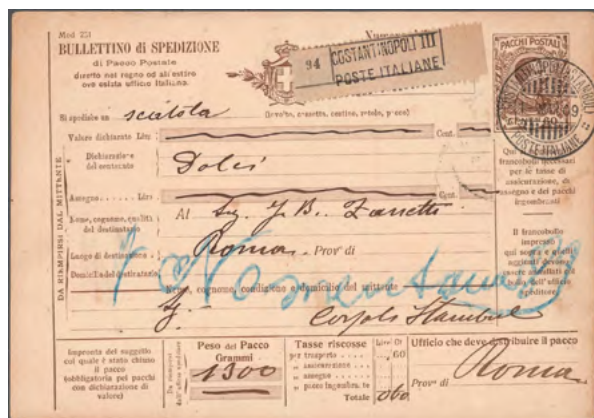 Mod 251
BULLETTINO di SPEDIZIONE
di Pacco Postale
diretto nel regno od all'estero
ove esista ufficio Italiano.
94 COSTANTINOPOLI III
POSTE ITALIANE
PACCHI POSTALI
POSTE ITALIANE
Si spedisce un scatola
(involto, cassetta, cestino, rotolo, pacco)
Valore dichiarato Lire Cent.
Dichiarazione
del contenuto Dolci
Assegno...... Lire Cent.
Nome, cognome, qualità
del destinatario Al Sig. J. B. Zanetti
Luogo di destinazione Roma Prov di
Domicilio del destinatario
Nomentana
Nome, cognome, condizione e domicilio del mittente
Stambul
DA RIEMPIRSI DAL MITTENTE
francobolli necessari
per le tasse di
assicurazione, di
assegno e dei pacchi
ingombranti
Il francobollo
Impronta del suggello
col quale è stato chiuso
il pacco
(obbligatoria pei pacchi
con dichiarazione di
valore)
Peso del Pacco
Grammi
1300
Tasse riscosse Lire Ct
per trasporto .... ,60
" assicurazione
" assegno
" pacco ingombrante
Totale 060
Ufficio che deve distribuire il pacco
Roma
Prov di